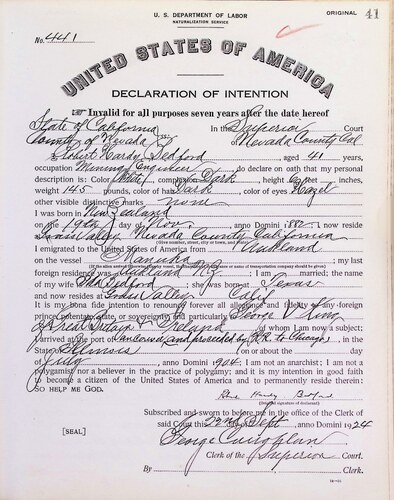 U. S. DEPARTMENT OF LABOR
NATURALIZATION SERVICE
ORIGINAL 41
No. 441
UNITED STATES OF AMERICA
DECLARATION OF INTENTION
☞ Invalid for all purposes seven years after the date hereof
State of California In the Superior Court
County of Nevada of Nevada County Cal
I, Robert Hardy Bedford, aged 41 years,
occupation Mining Engineer, do declare on oath that my personal
description is: Color White, complexion Dark, height feet inches,
weight 145 pounds, color of hair Dark, color of eyes Hazel
other visible distinctive marks none
I was born in New Zealand
on the 19th day of Nov., anno Domini 1882; I now reside
at Grass Valley Nevada County California
(Give number, street, city or town, and state.)
I emigrated to the United States of America from Auckland
on the vessel Manuka; my last
(If the alien arrived otherwise than by vessel, the character of conveyance or name of transportation company should be given)
foreign residence was Auckland N.Z.; I am married; the name
of my wife is Bedford; she was born at Texas
and now resides at Grass Valley Calif.
It is my bona fide intention to renounce forever all allegiance and fidelity to any foreign
prince, potentate, state, or sovereignty, and particularly to George V King
of Great Britain & Ireland, of whom I am now a subject;
I arrived at the port of Vancouver and proceeded by R.R. to Chicago, in the
State of Illinois, on or about the day
of July, anno Domini 1904; I am not an anarchist; I am not a
polygamist nor a believer in the practice of polygamy; and it is my intention in good faith
to become a citizen of the United States of America and to permanently reside therein:
SO HELP ME GOD.
Hardy Bedford
(Original signature of declarant)
Subscribed and sworn to before me in the office of the Clerk of
said Court this 22nd day of Sept, anno Domini 1924
[SEAL]
George
Clerk of the Superior Court.
By , Clerk.